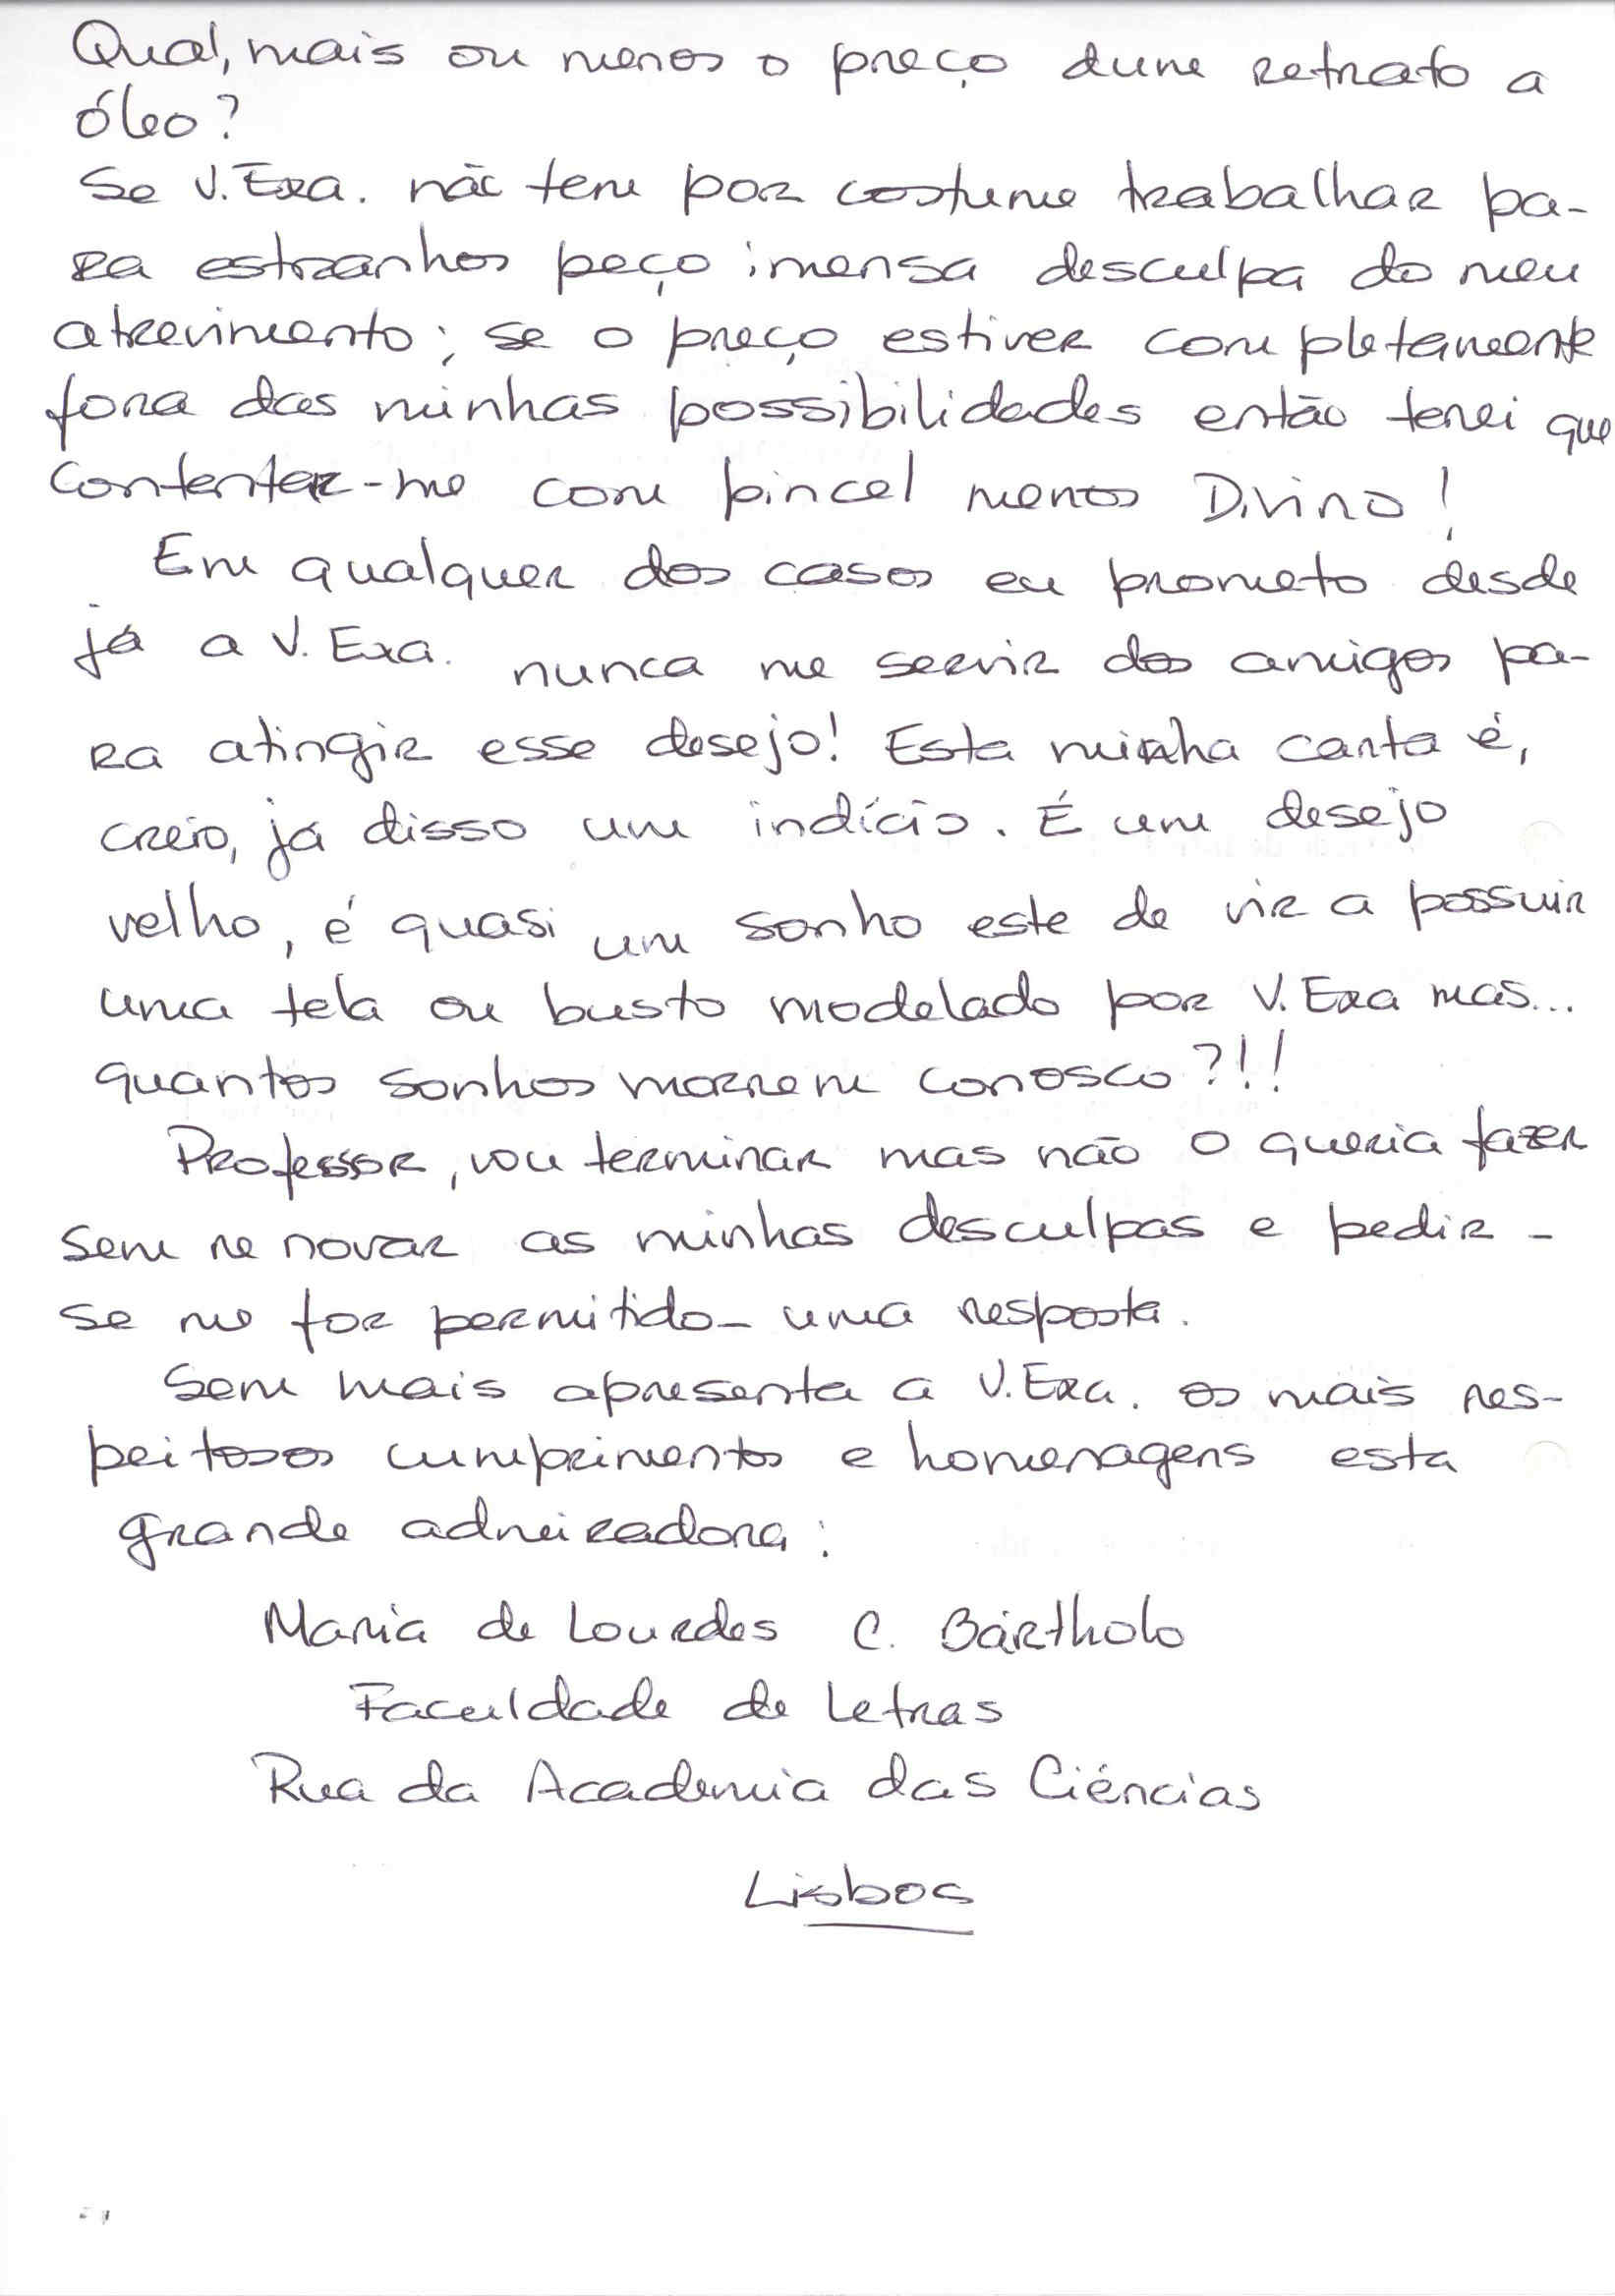 Qual, mais ou menos o preço dum retrato a
óleo?
Se V. Exa. não tem por costume trabalhar pa-
ra estranhos peço imensa desculpa do meu
atrevimento; se o preço estiver completamente
fora das minhas possibilidades então terei que
contentar-me com pincel menos Divino!
Em qualquer dos casos eu prometo desde
já a V. Exa. nunca me servir dos amigos pa-
ra atingir esse desejo! Esta minha carta é,
creio, já disso um indício. É um desejo
velho, é quasi um sonho este de vir a possuir
uma tela ou busto modelado por V. Exa mas...
quantos sonhos morrem conosco?!!
Professor, vou terminar mas não o queria fazer
sem renovar as minhas desculpas e pedir -
se me for permitido - uma resposta.
Sem mais apresenta a V. Exa. os mais res-
peitosos cumprimentos e homenagens esta
grande admiradora:
Maria de Lourdes C. Bártholo
Faculdade de Letras
Rua da Academia das Ciências
Lisboa